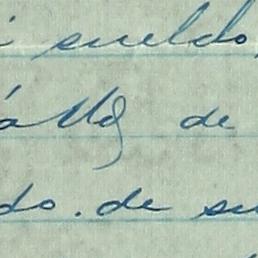 i sueldo,
de
do. de su